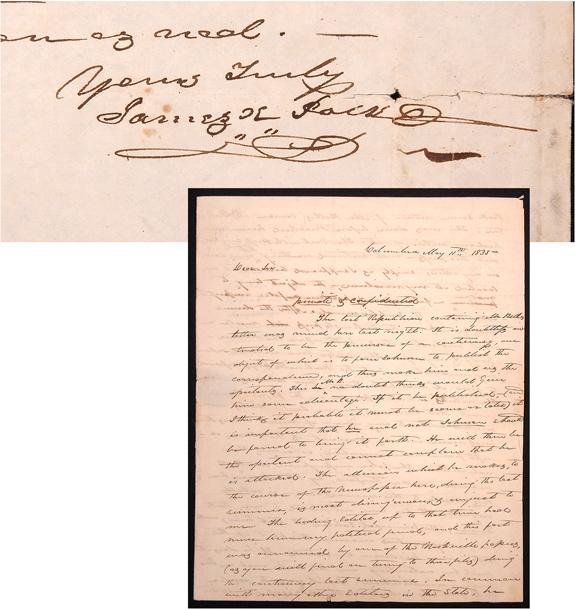 Yours Truly
James K Polk
Columbia May 11th 1835
Dear Sir
private & confidential
The last Republican containing Mr Bell's
letter was mailed for last night. It is doubtless
to be the of a controversy, one
object of which is to Johnson to publish the
correspondence, and thus make him and me the
no doubt thinks would give
him some advantage. If it be published, (and
I think it probable it must be sooner or later) it
is important that he and not Johnson should
be forced to bring it forth. He will then be
the and cannot complain that he
is attacked. The allusion which he makes, to
the course of the Newspaper here, during the last
summer, is most disingenuous, & unjust to
me. The Editor, up to that time had
been his political friend, and this fact
was announced by one of the Nashville papers,
(as you will find on to the files) during
the last summer. In common
with many other Editors in the State, he